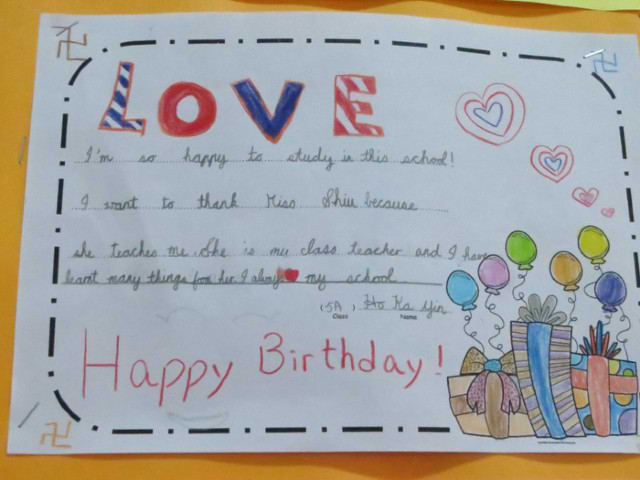 LOVE
I'm so happy to study in this school!
I want to thank Miss Shiu because
she teaches me. She is my class teacher and I have
learnt many things from her. I always ❤ my school
(5A) Ho Ka Yin
Class Name
Happy Birthday!